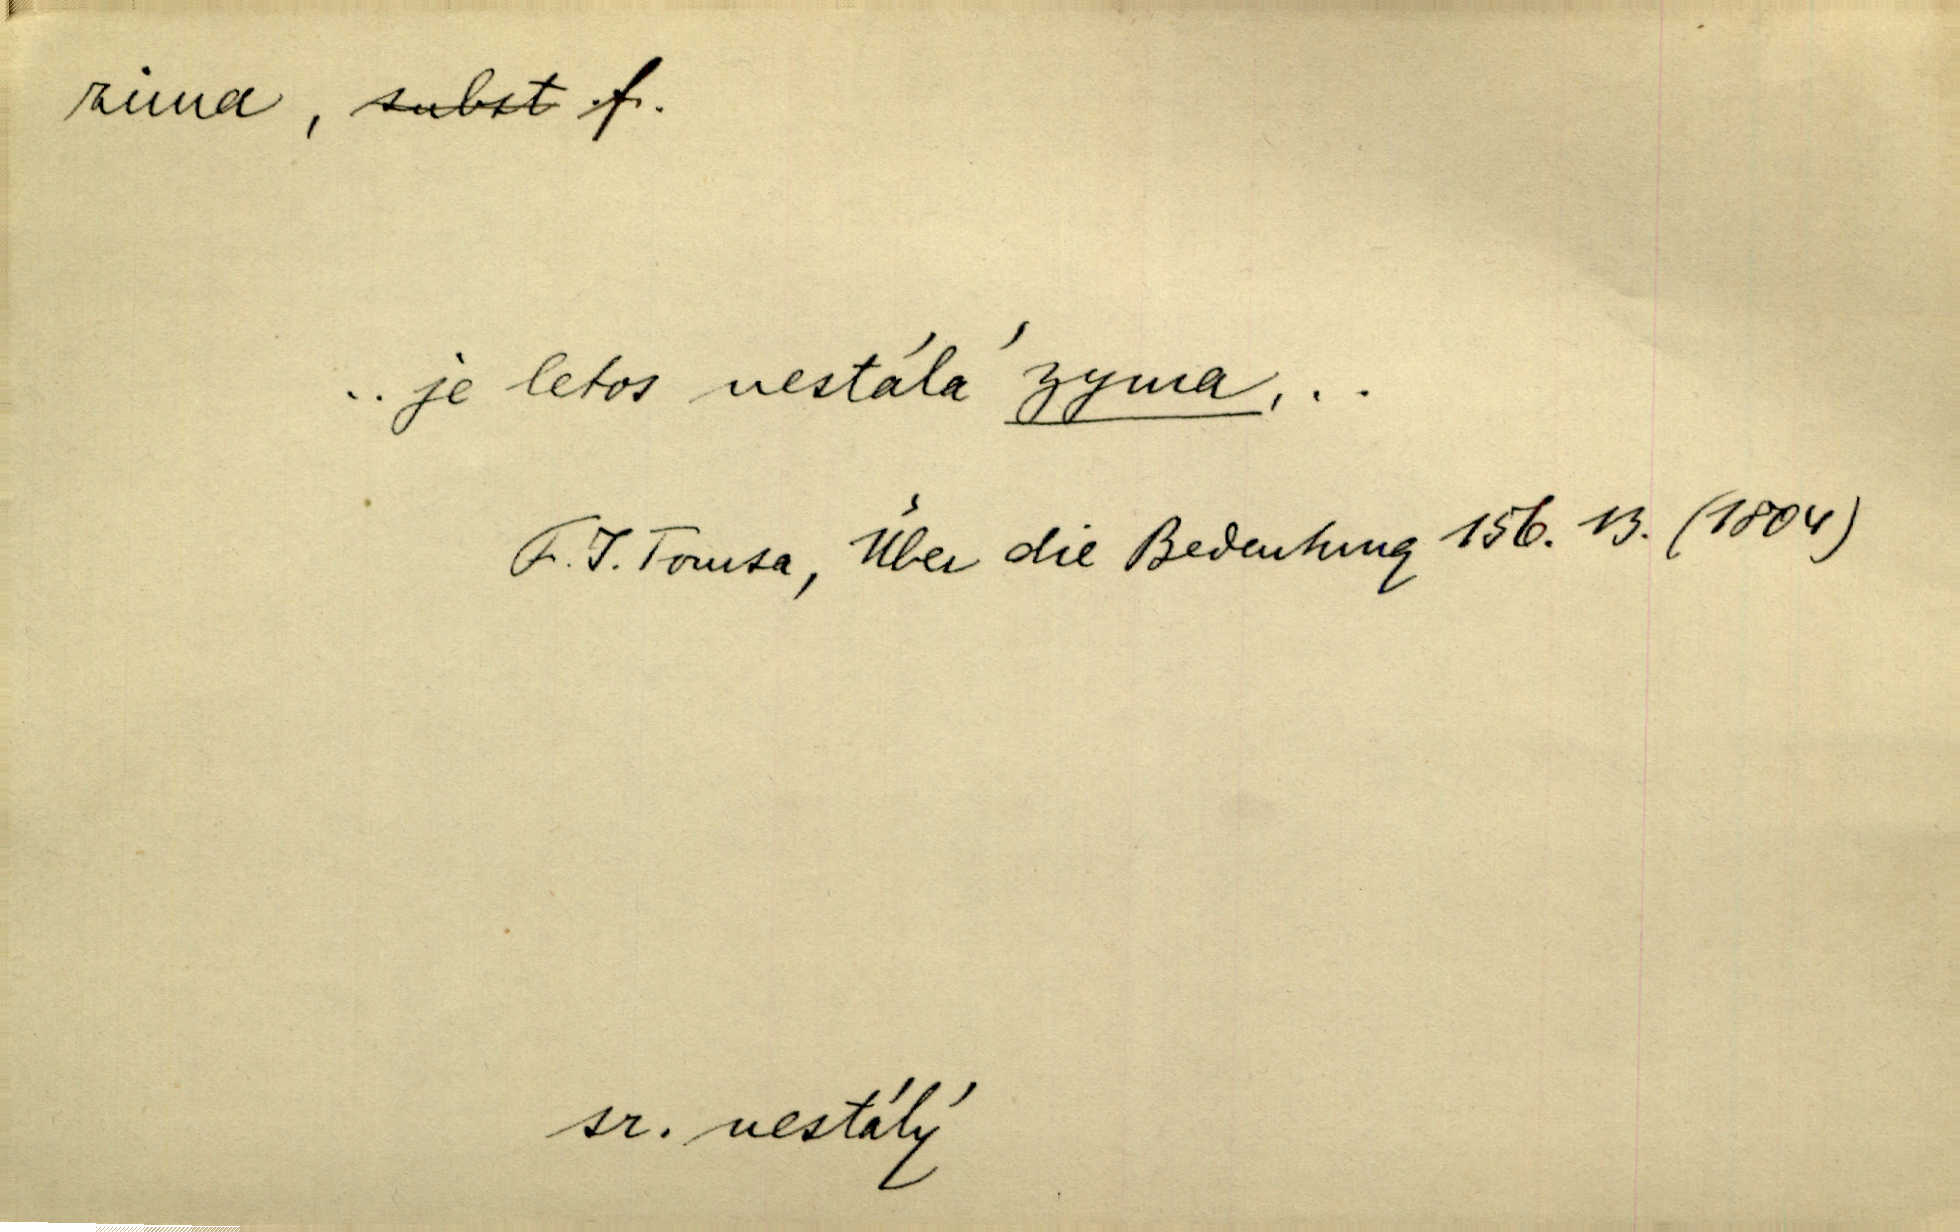 zima, subst f.
.. je letos nestálá zyma, ..
F. J. Tomsa, Über die Bedeutung 156. 13. (1804)
sr. nestálý